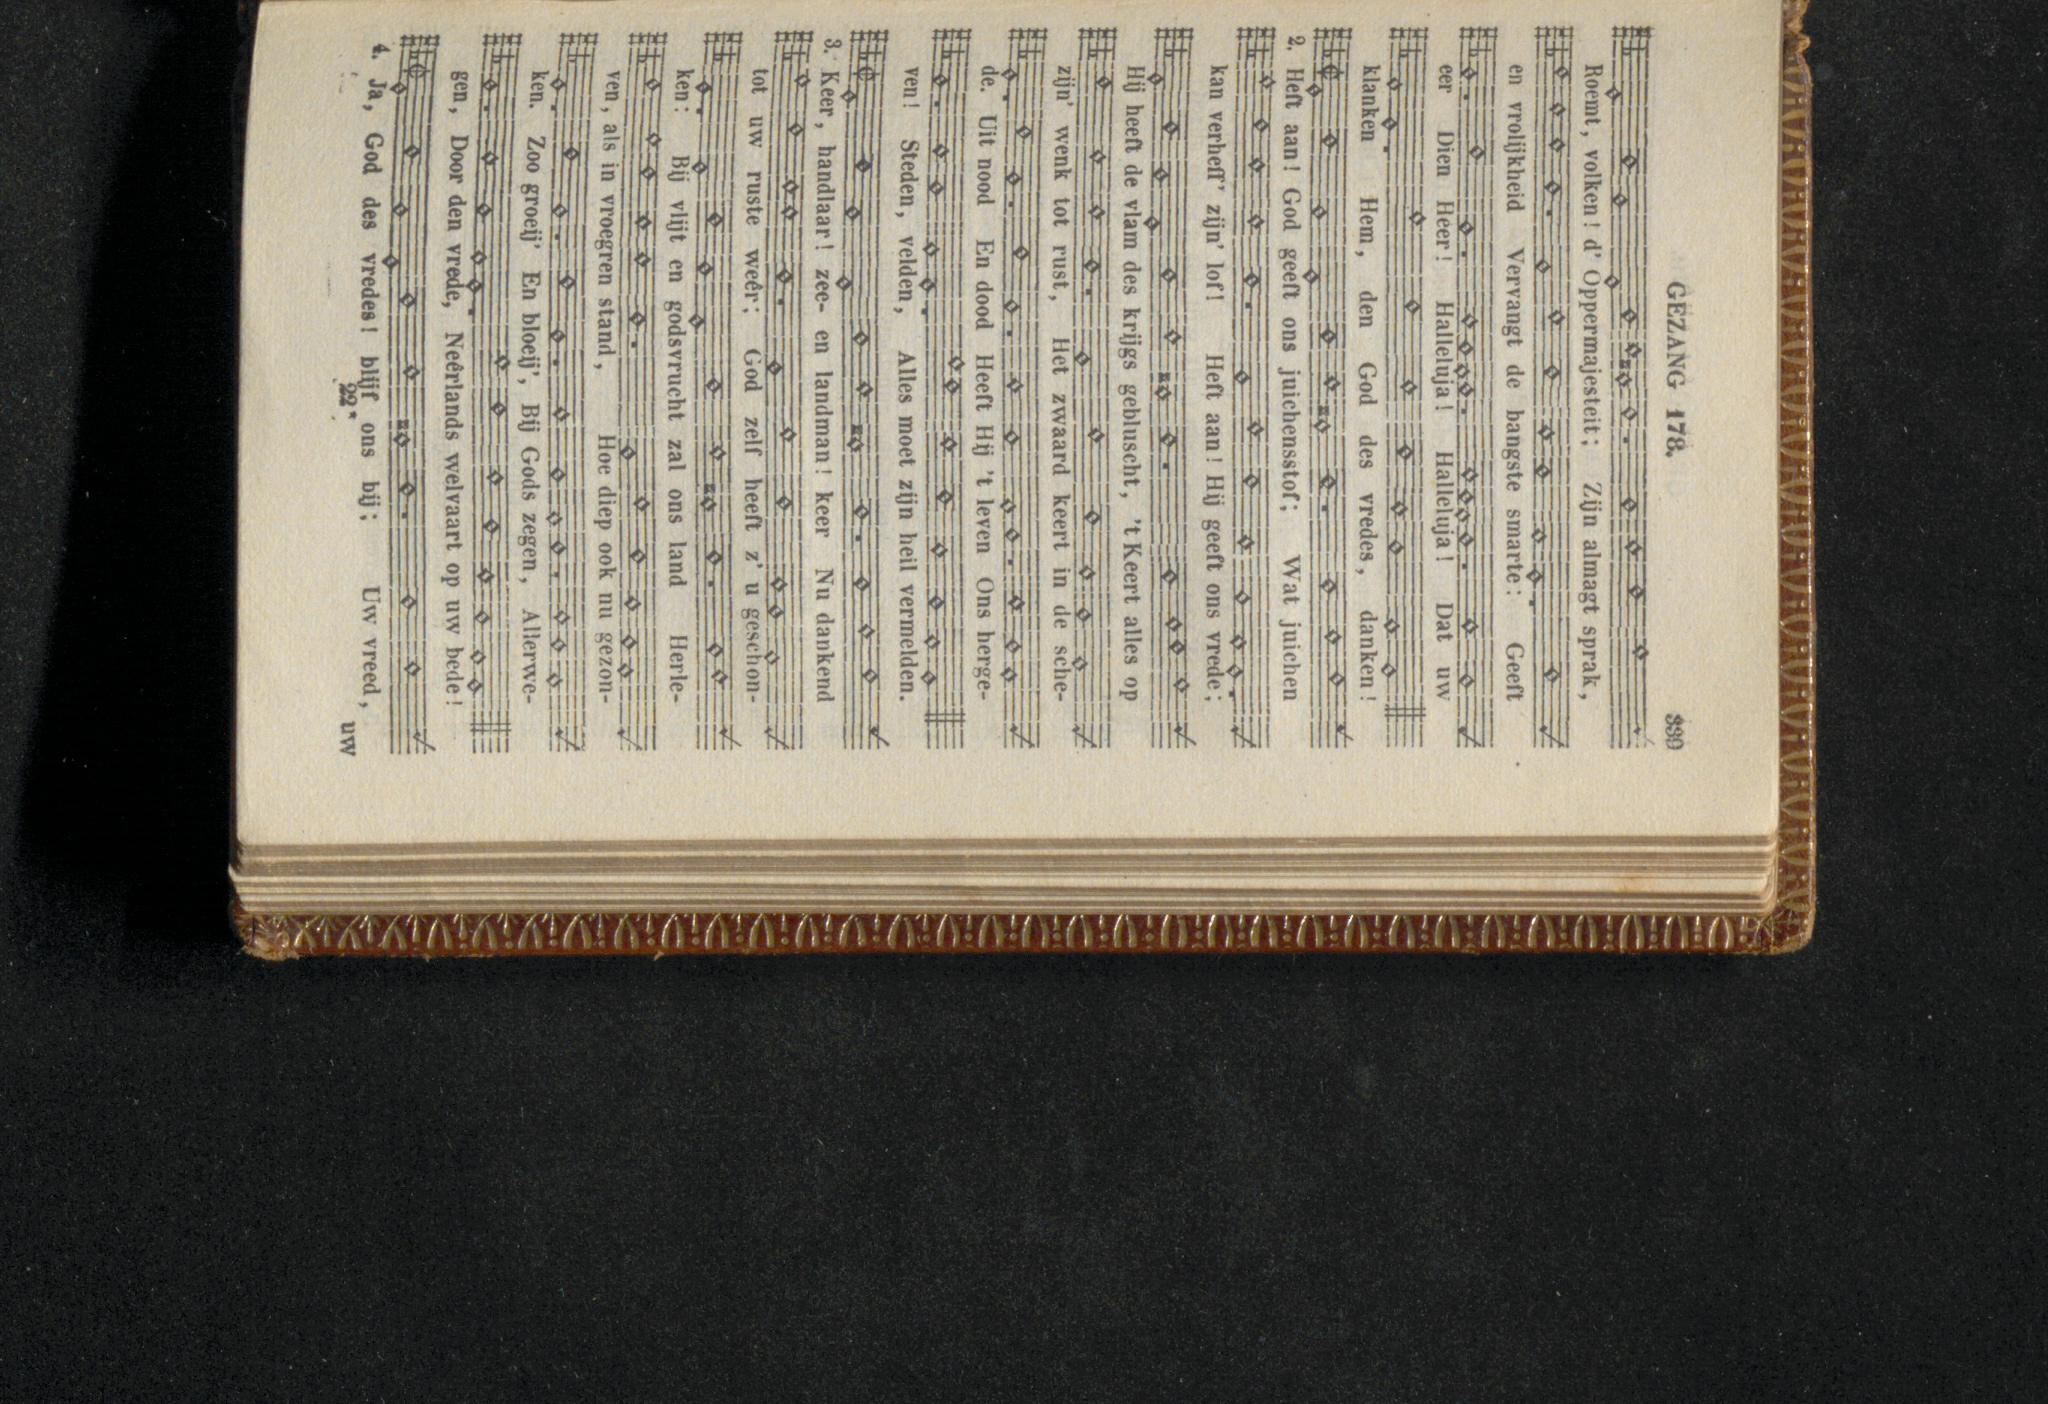 GEZANG 178. 339
Roemt, volken! d' Oppermajesteit; Zijn almagt sprak,
en vrolijkheid Vervangt de bangste smarte: Geeft
eer Dien Heer! Halleluja! Halleluja! Dat uw
klanken Hem, den God des vredes, danken!
2. Heft aan! God geeft ons juichensstof; Wat juichen
kan verheff' zijn' lof! Heft aan! Hij geeft ons vrede;
Hij heeft de vlam des krijgs gebluscht, 't Keert alles op
zijn' wenk tot rust, Het zwaard keert in de sche-
de. Uit nood En dood Heeft Hij 't leven Ons herge-
ven! Steden, velden, Alles moet zijn heil vermelden.
3. Keer, handlaar! zee- en landman! keer Nu dankend
tot uw ruste weêr; God zelf heeft z' u geschon-
ken: Bij vlijt en godsvrucht zal ons land Herle-
ven, als in vroegren stand, Hoe diep ook nu gezon-
ken. Zoo groeij' En bloeij', Bij Gods zegen, Allerwe-
gen, Door den vrede, Neêrlands welvaart op uw bede!
4. Ja, God des vredes! blijf ons bij; Uw vreed,
22* uw